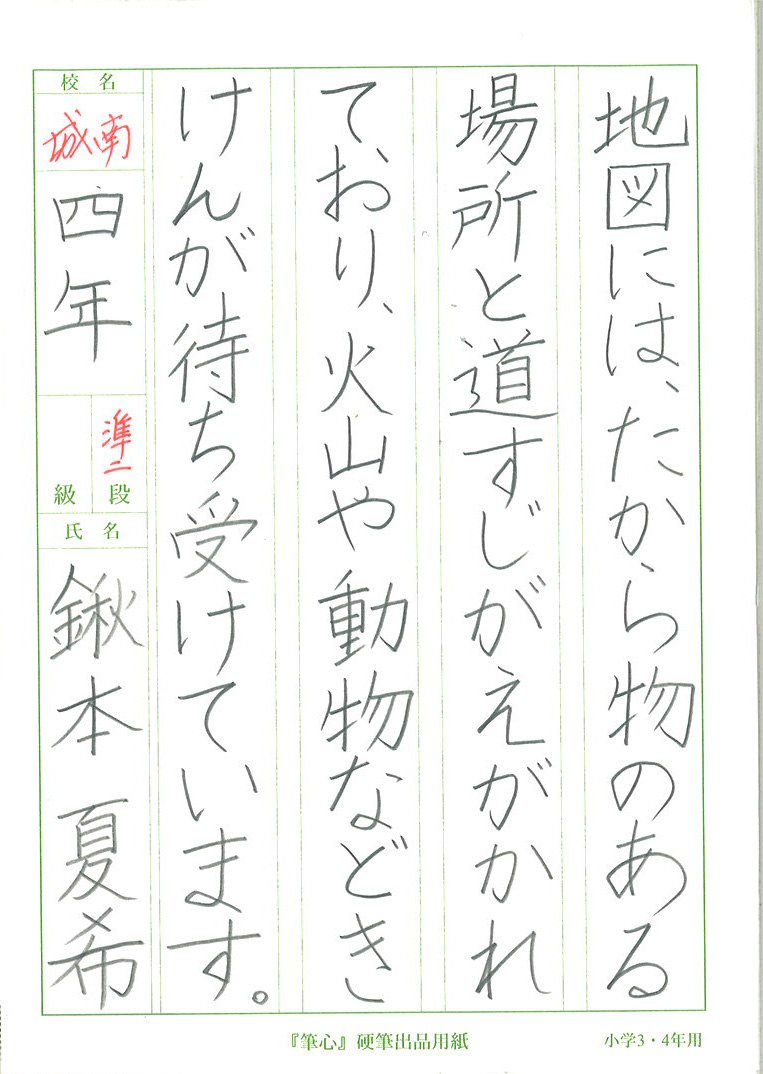 地図には、たから物のある
場所と道すじがえがかれ
ており、火山や動物などき
けんが待ち受けています。
校名
城南
四年
準二
級 段
氏名
鍬本 夏希
『筆心』硬筆出品用紙
小学3・4年用